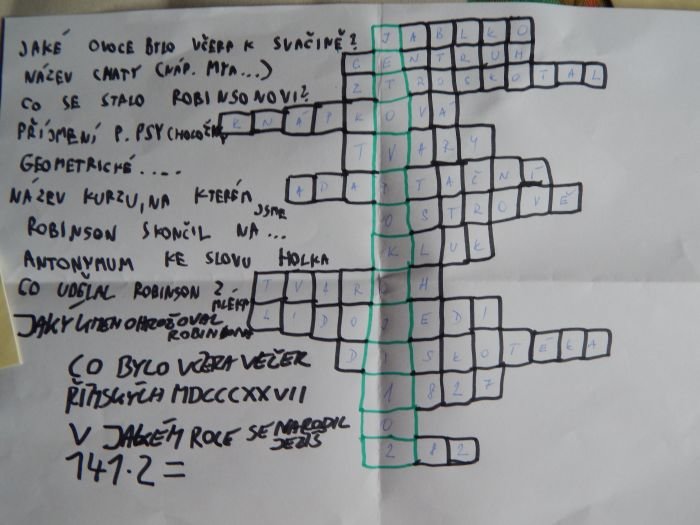 JAKÉ OVOCE BYLO VČERA K SVAČINĚ? JABLKO
NÁZEV CHATY (NÁP. MYA...) CENTRUM
CO SE STALO ROBINSONOVI? ZTROSKOTAL
PŘÍJMENÍ P. PSYCHOLOŽKY KNÁPKOVÁ
GEOMETRICKÉ.... TVARY
NÁZEV KURZU, NA KTERÉM JSME ADAPTAČNÍ
ROBINSON SKONČIL NA... OSTROVĚ
ANTONYMUM KE SLOVU HOLKA KLUK
CO UDĚLAL ROBINSON Z MLÉKA TVAROH
OHROŽOVAL ROBINSONA LIDOJEDI
CO BYLO VČERA VEČER DISKOTÉKA
ŘÍMSKÝCH MDCCCXXVII 1827
V JAKÉM ROCE SE NARODIL JEŽÍŠ 0
141·2= 282